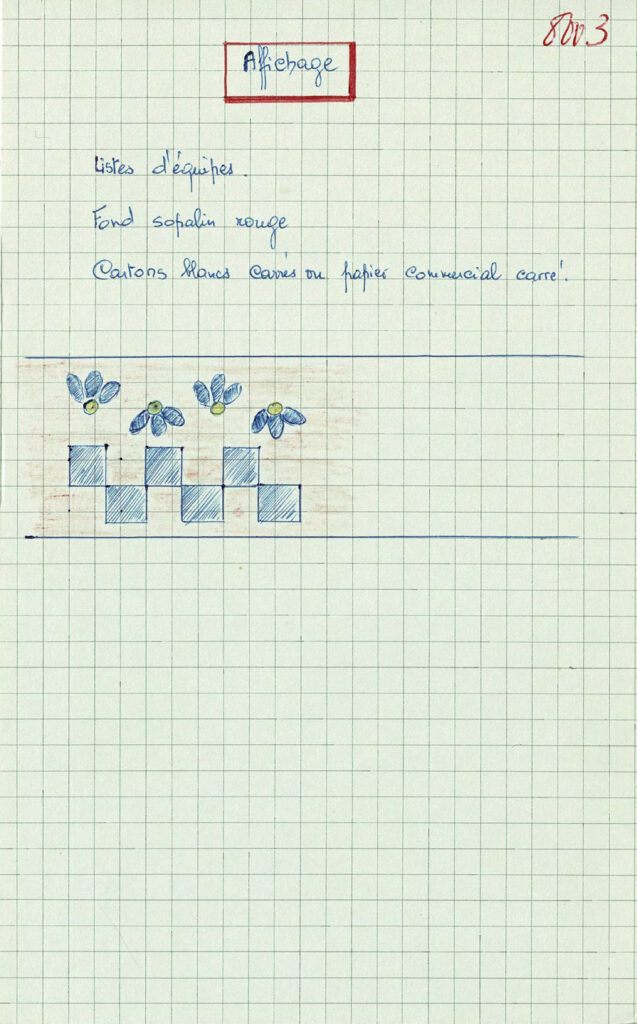 800.3
Affichage
Listes d'équipes.
Fond sopalin rouge
Cartons blancs carrés ou papier commercial carré.